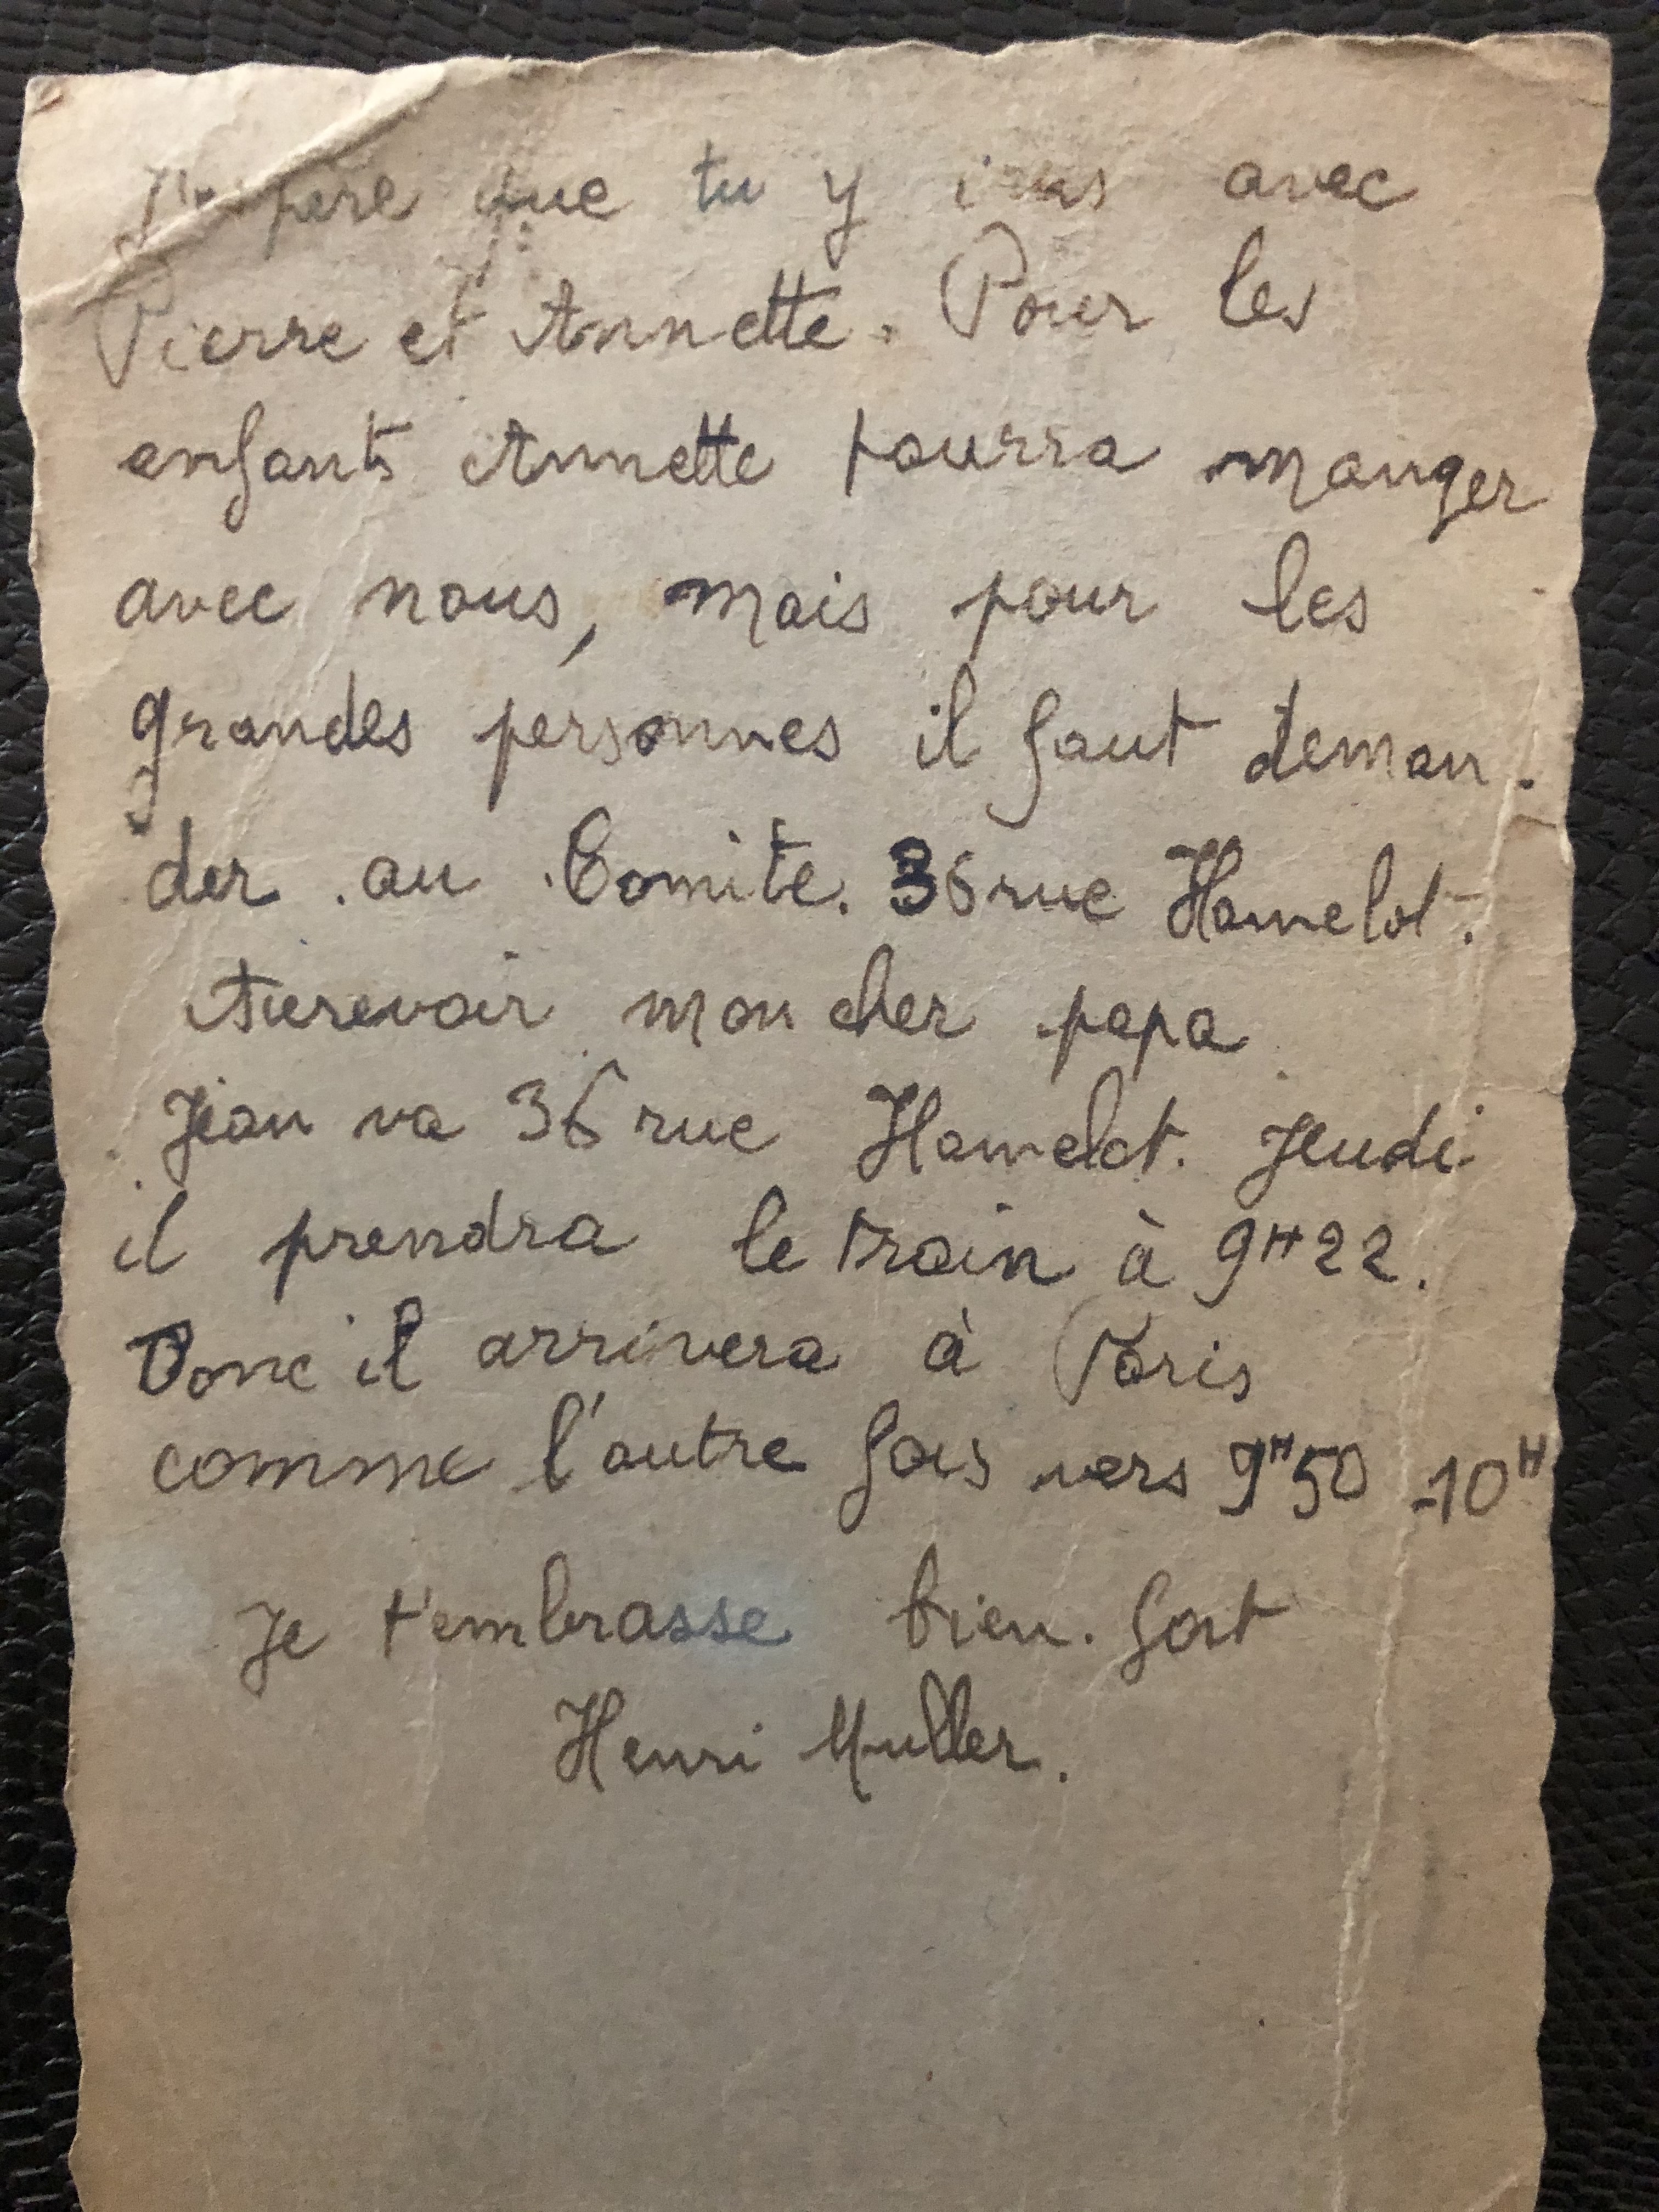 J'espère que tu y iras avec
Pierre et Annette. Pour les
enfants Annette pourra manger
avec nous, mais pour les
grandes personnes il faut deman-
der au Comite. 36 rue Hamelot.
Aurevoir mon cher papa
Jean va 36 rue Hamelot. Jeudi
il prendra le train à 9H22.
Donc il arrivera à Paris
comme l'autre fois vers 9H50 10H
Je t'embrasse bien fort
Henri Muller.